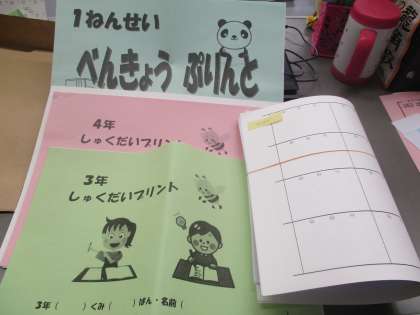 1ねんせい
べんきょう ぷりんと
4年
しゅくだいプリント
3年
しゅくだいプリント
3年( )くみ( )ばん・名前(